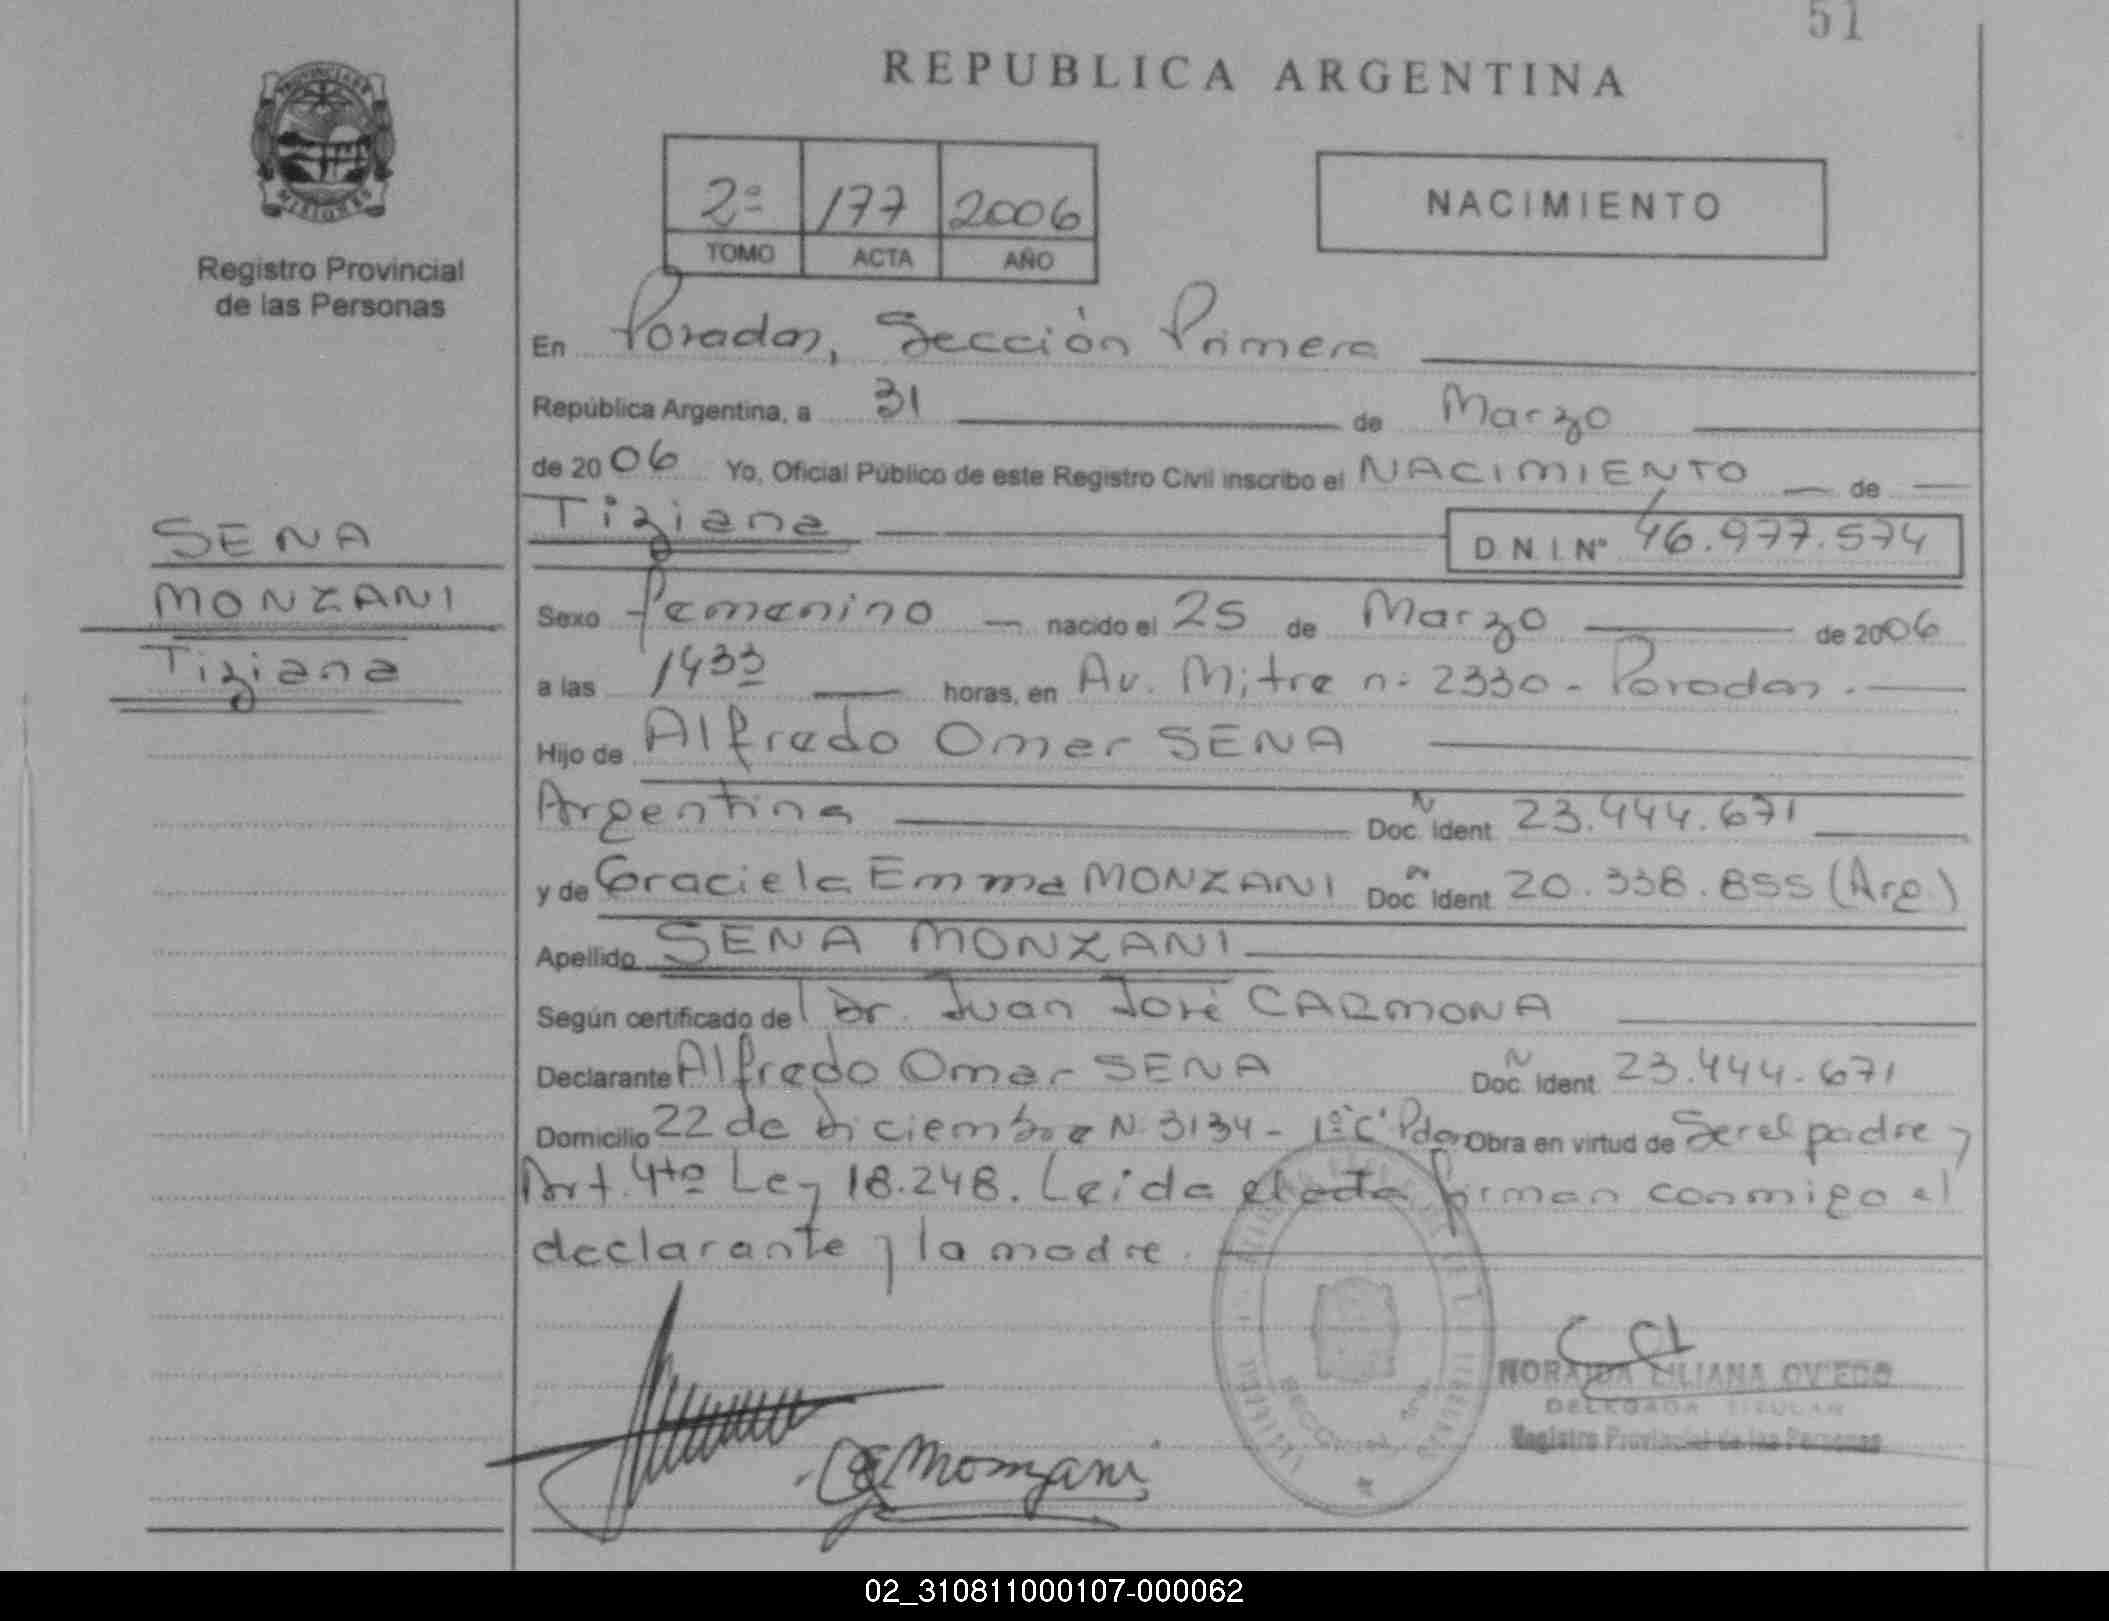 51
PROVINCIA DE
MISIONES
Registro Provincial
de las Personas
REPUBLICA ARGENTINA
2º 177 2006
TOMO ACTA AÑO
NACIMIENTO
En Posadas, Sección Primera
República Argentina, a 31 de Marzo
de 2006 Yo, Oficial Público de este Registro Civil inscribo el NACIMIENTO de
Tiziana D.N.I. Nº 46.977.574
SENA
MONZANI
Tiziana
Sexo femenino nacido el 25 de Marzo de 2006
a las 1433 horas, en Av. Mitre n: 2330 - Posadas.
Hijo de Alfredo Omar SENA
Argentina Doc. Ident. N 23.444.671
y de Graciela Emma MONZANI Doc. Ident. N 20.338.855 (Arg.)
Apellido SENA MONZANI
Según certificado de Dr. Juan José CARMONA
Declarante Alfredo Omar SENA Doc. Ident. N 23.444.671
Domicilio 22 de Diciembre N. 3134 - 1º "C" Pdas Obra en virtud de Ser el padre y
Art. 4to Ley 18.248. Leída el acta firman conmigo el
declarante y la madre.
Monzani
NORAIDA LILIANA OVIEDO
DELEGADA TITULAR
Registro Provincial de las Personas
02_310811000107-000062